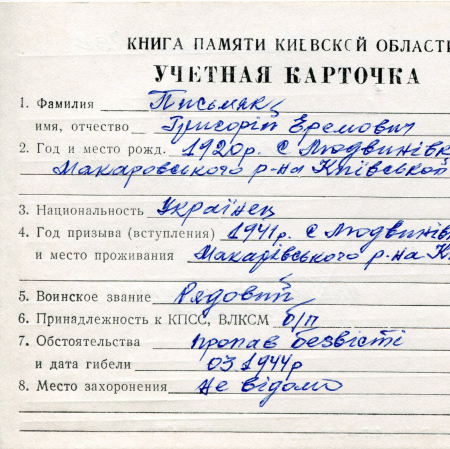 КНИГА ПАМЯТИ КИЕВСКОЙ ОБЛАСТИ
УЧЕТНАЯ КАРТОЧКА
1. Фамилия Письмак
имя, отчество Григорій Еремович
2. Год и место рожд. 1920р. с Людвинівк
Макаровського р-на Київської
3. Национальность Українец
4. Год призыва (вступления) 1941р. с Людвинів
и место проживания Макарівського р-на К
5. Воинское звание Рядовий
6. Принадлежность к КПСС, ВЛКСМ б/п
7. Обстоятельства пропав безвісті
и дата гибели 03.1944р
8. Место захоронения Не відомо